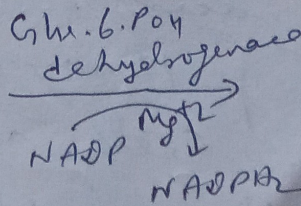 Glu. 6. PO4
dehydrogenase
Mg+2
NADP
NADPH2